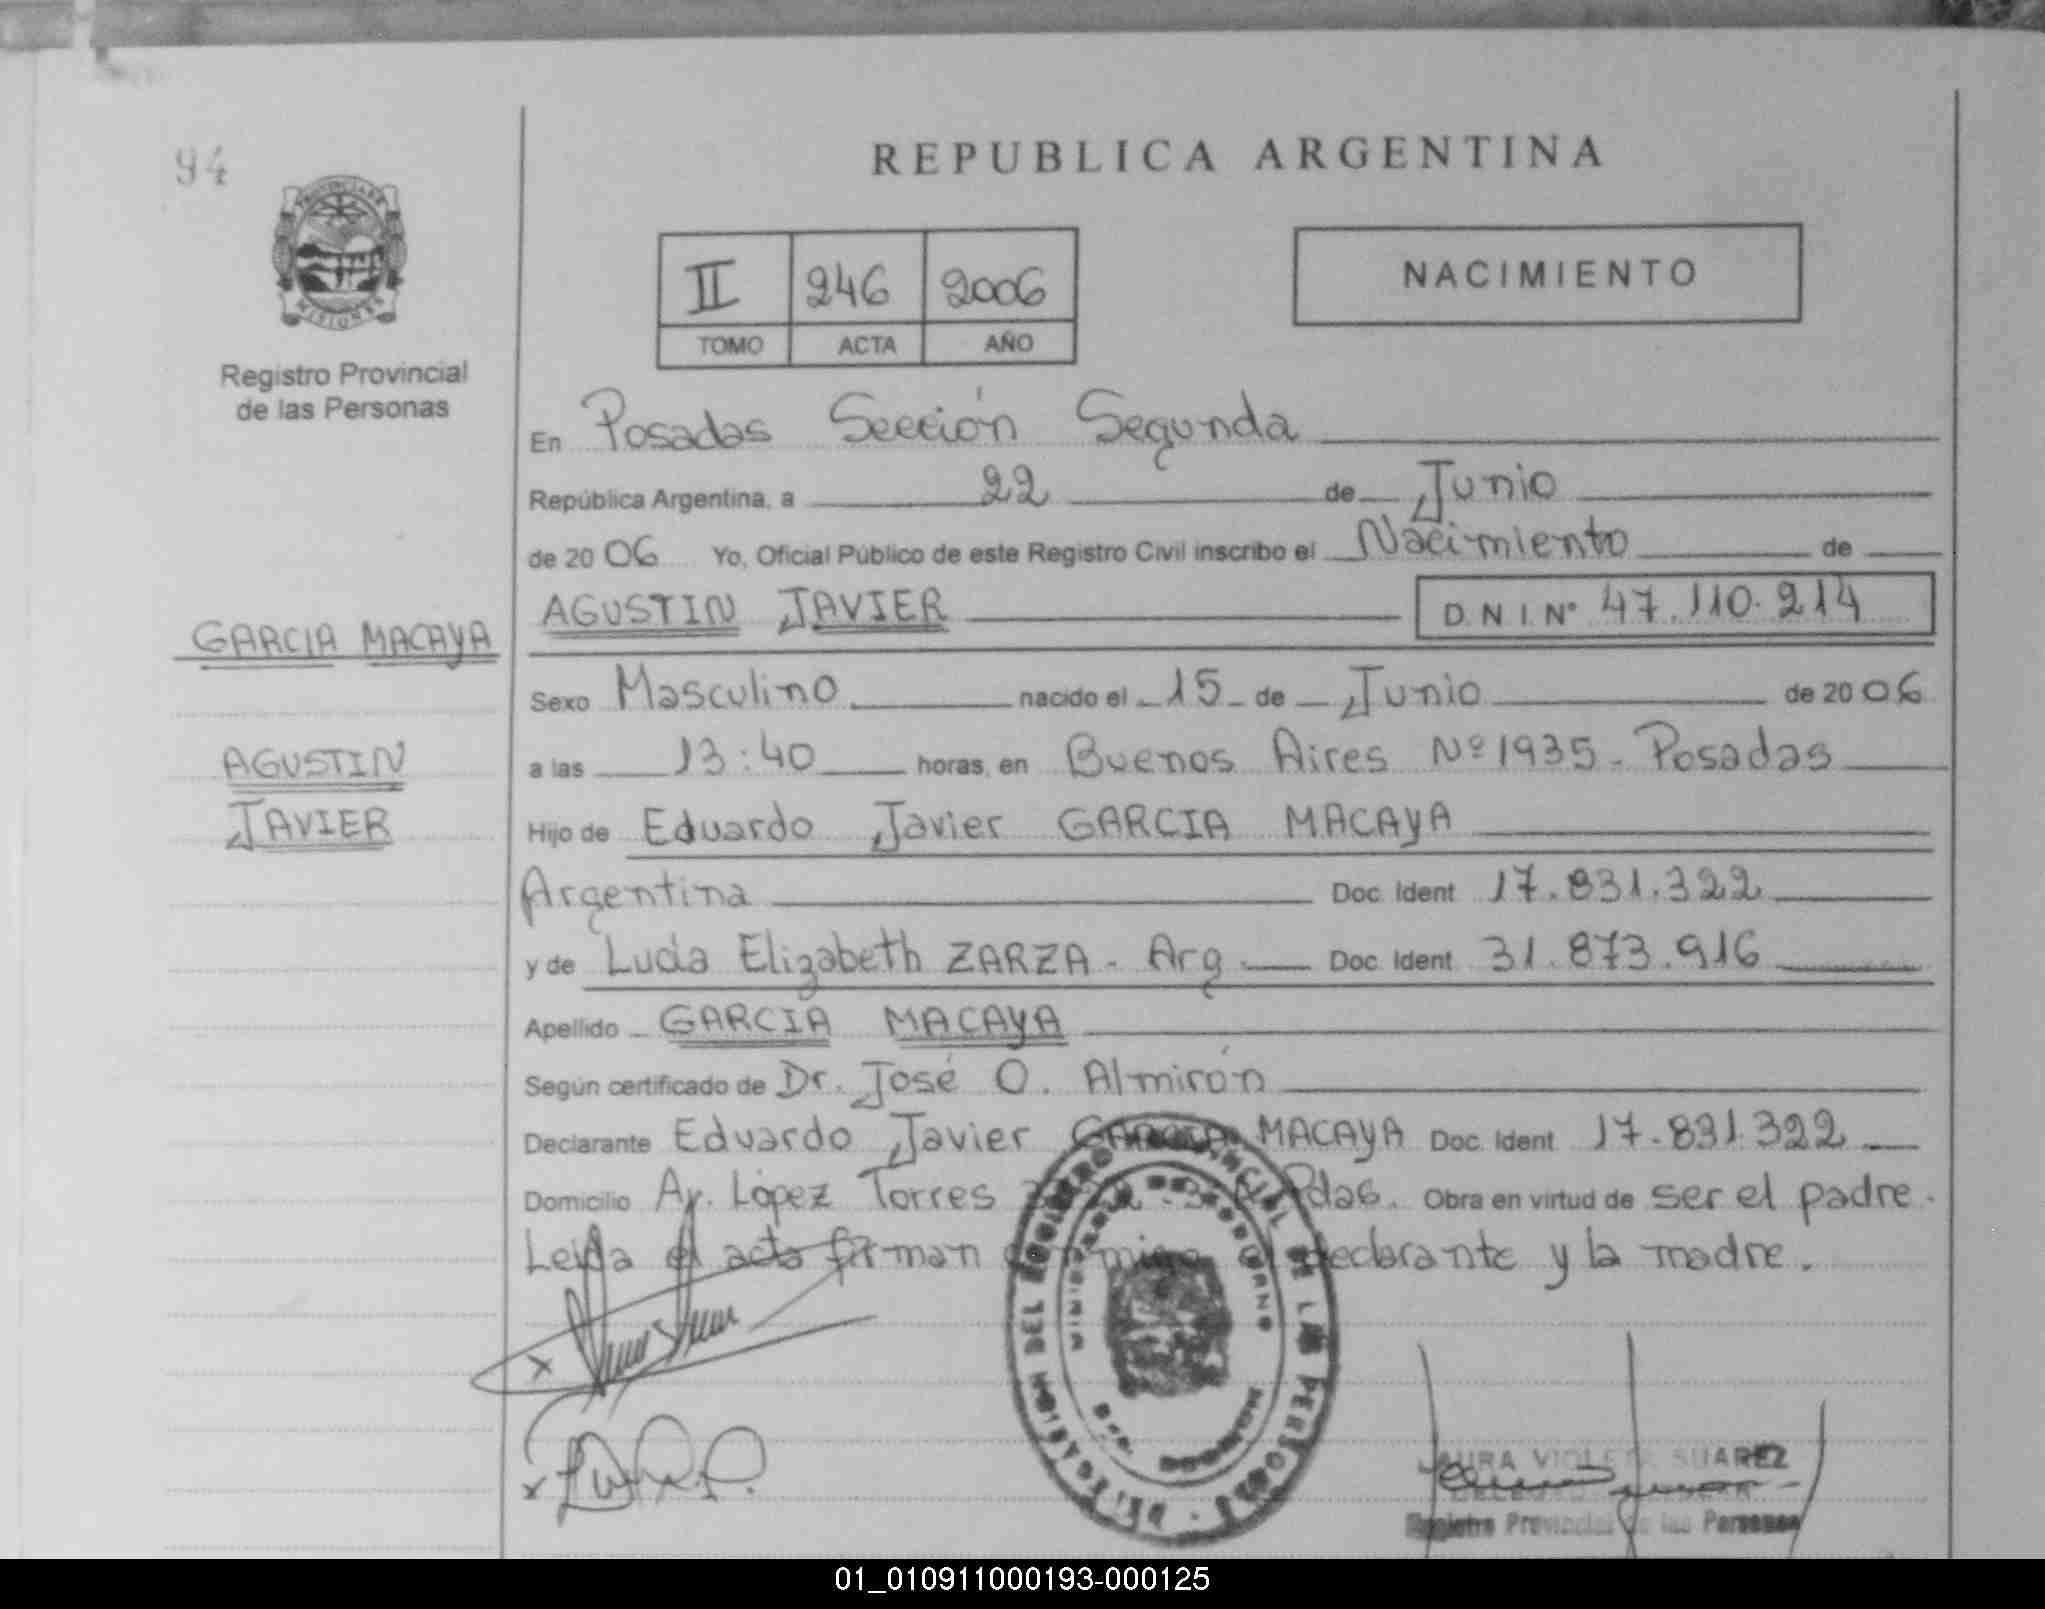 94
REPUBLICA ARGENTINA
PROVINCIA DE
MISIONES
II 246 2006
TOMO ACTA AÑO
NACIMIENTO
Registro Provincial
de las Personas
En Posadas Sección Segunda
República Argentina, a 22 de Junio
de 2006 Yo, Oficial Público de este Registro Civil inscribo el Nacimiento de
GARCIA MACAYA
AGUSTIN JAVIER D.N.I. Nº 47.110.214
Sexo Masculino nacido el 15 de Junio de 2006
AGUSTIN
JAVIER
a las 13:40 horas, en Buenos Aires Nº 1935 - Posadas
Hijo de Eduardo Javier GARCIA MACAYA
Argentina Doc. Ident 17.831.322
y de Lucia Elizabeth ZARZA - Arg. Doc. Ident 31.873.916
Apellido GARCIA MACAYA
Según certificado de Dr. José O. Almirón
Declarante Eduardo Javier GARCIA MACAYA Doc. Ident 17.831.322
Domicilio Av. López Torres Pdas. Obra en virtud de ser el padre.
Leida el acta firman declarante y la madre.
DEL REGISTRO PROVINCIAL DE LAS PERSONAS
MINISTERIO DE GOBIERNO
LAURA VIOLETA SUAREZ
Registro Provincial de las Personas
01_010911000193-000125